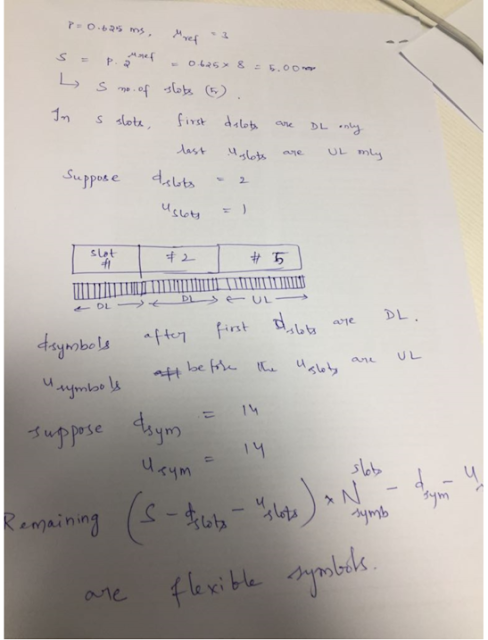 P = 0.625 ms, μref = 3
S = P. 2^μref = 0.625 × 8 = 5.00
↳ S no. of slots (5).
In S slots, first dslots are DL only
last uslots are UL only
Suppose dslots = 2
uslots = 1
slot #1 #2 #5
← DL → ← DL → ← UL →
dsymbols after first dslots are DL.
usymbols before the uslots are UL
suppose dsym = 14
usym = 14
Remaining (S - dslots - uslots) × N slots symb - dsym - u
are flexible symbols.